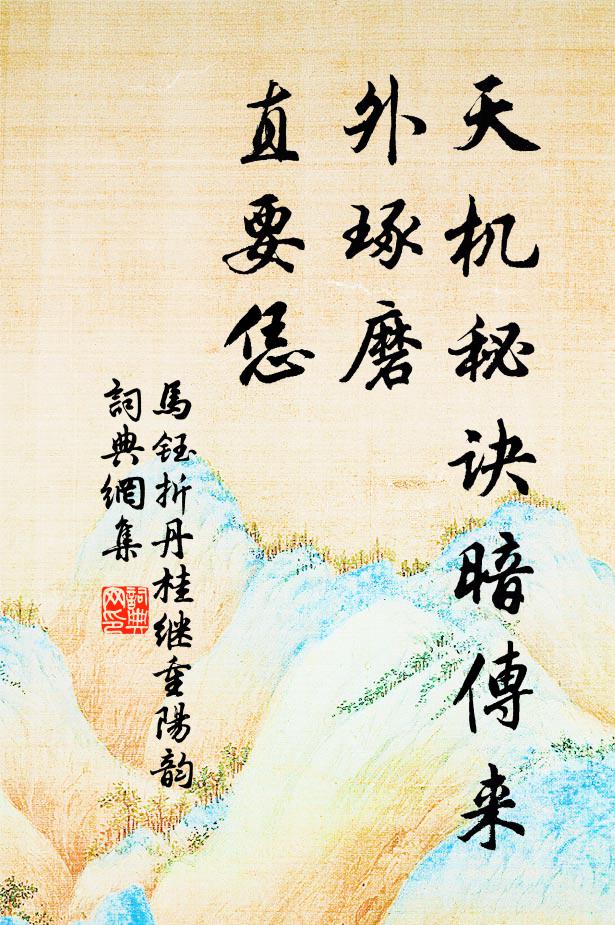 天机秘诀暗傳来
外琢磨
直要恁
馬钰折丹桂继重陽韵
詞典網集
詞典網印